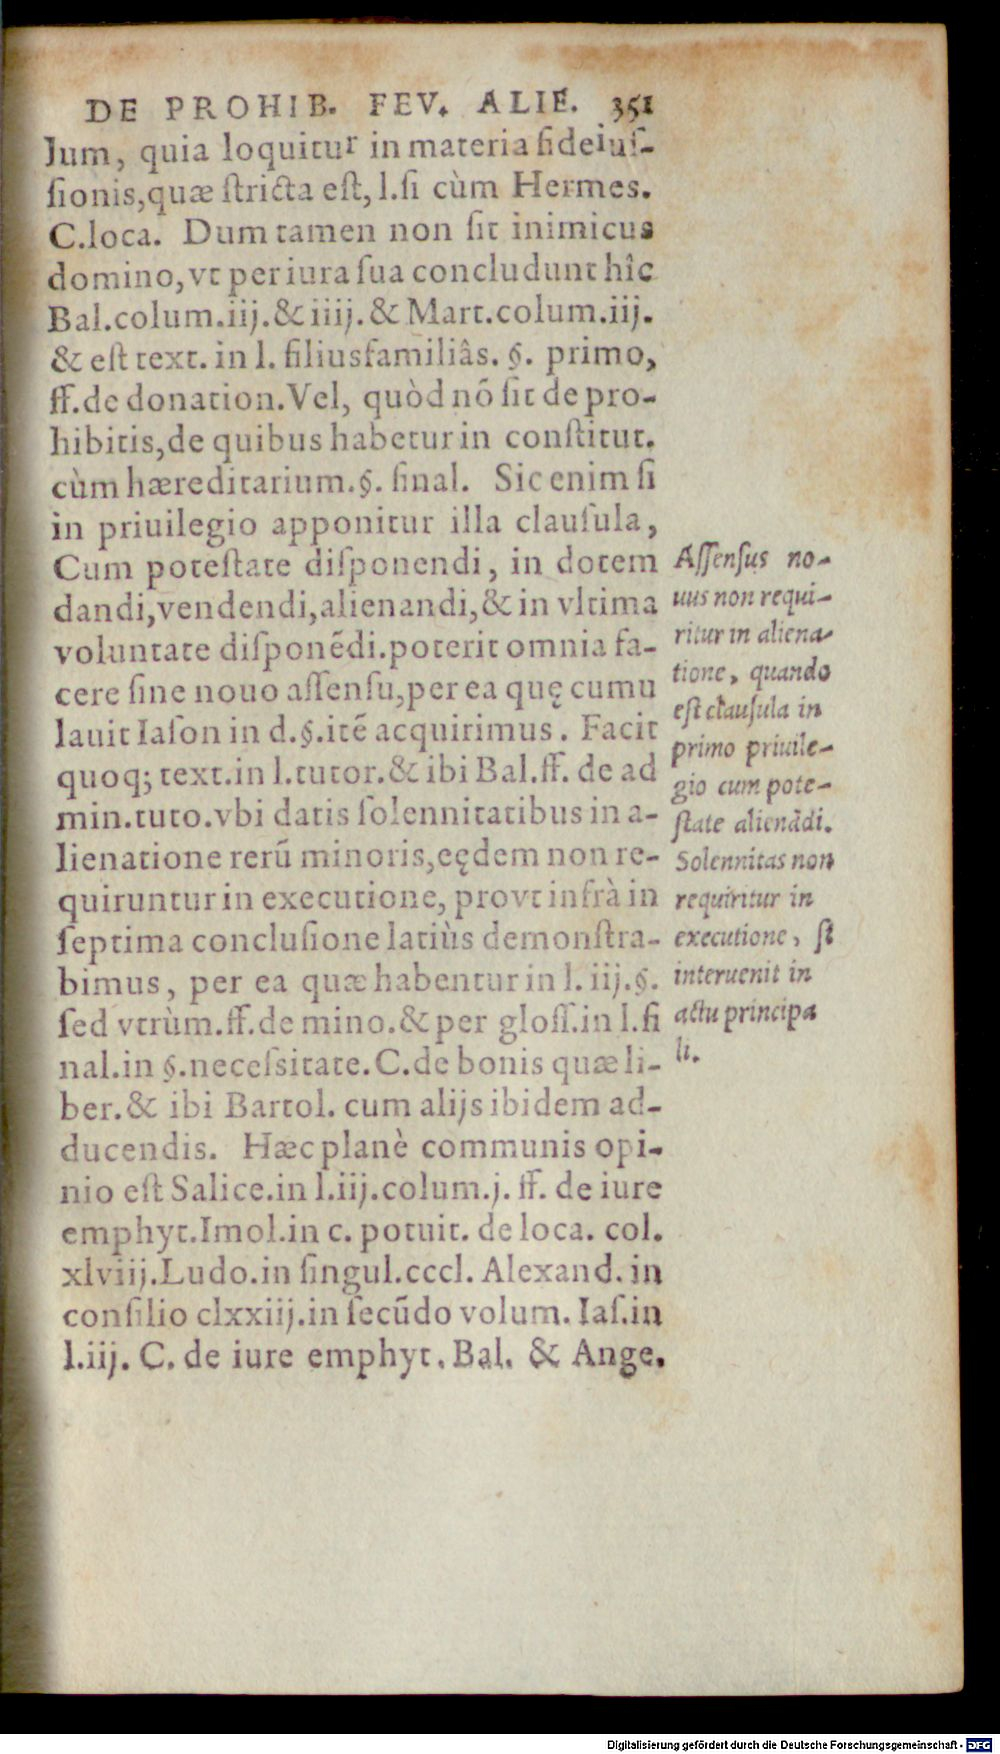 DE PROHIB. FEV. ALIE. 351
lum, quia loquitur in materia fideiuſ-
ſionis,quæ ſtricta eſt, l.ſi cùm Hermes.
C.loca. Dum tamen non ſit inimicus
domino,vt per iura ſua concludunt hîc
Bal.colum.iij.& iiij.& Mart.colum.iij.
& eſt text. in l. filiusfamiliâs. §. primo,
ff.de donation.Vel, quòd nō ſit de pro-
hibitis,de quibus habetur in conſtitut.
cùm hæreditarium.§. final. Sic enim ſi
in priuilegio apponitur illa clauſula,
Cum poteſtate diſponendi, in dotem
dandi,vendendi,alienandi,& in vltima
voluntate diſponēdi.poterit omnia fa-
cere ſine nouo aſſenſu,per ea quę cumu
lauit Iaſon in d.§.itē acquirimus. Facit
quoq; text.in l.tutor.& ibi Bal.ff. de ad
min.tuto.vbi datis ſolennitatibus in a-
lienatione rerū minoris,eędem non re-
quiruntur in executione, provt infrà in
ſeptima concluſione latiùs demonſtra-
bimus, per ea quæ habentur in l. iij.§.
ſed vtrùm.ff.de mino.& per gloſſ.in l.fi
nal.in §.neceſsitate.C.de bonis quæ li-
ber.& ibi Bartol. cum alijs ibidem ad-
ducendis. Hæc planè communis opi-
nio eſt Salice.in l.iij.colum.j. ff. de iure
emphyt.Imol.in c. potuit. de loca. col.
xlviij.Ludo.in ſingul.cccl. Alexand. in
conſilio clxxiij.in ſecūdo volum. Iaſ.in
l.iij. C. de iure emphyt. Bal. & Ange.
Aſſenſus no-
uus non requi-
ritur in aliena-
tione, quando
eſt clauſula in
primo priuile-
gio cum pote-
ſtate alienādi.
Solennitas non
requiritur in
executione, ſi
interuenit in
actu principa
li.
Digitalisierung gefördert durch die Deutsche Forschungsgemeinschaft - DFG